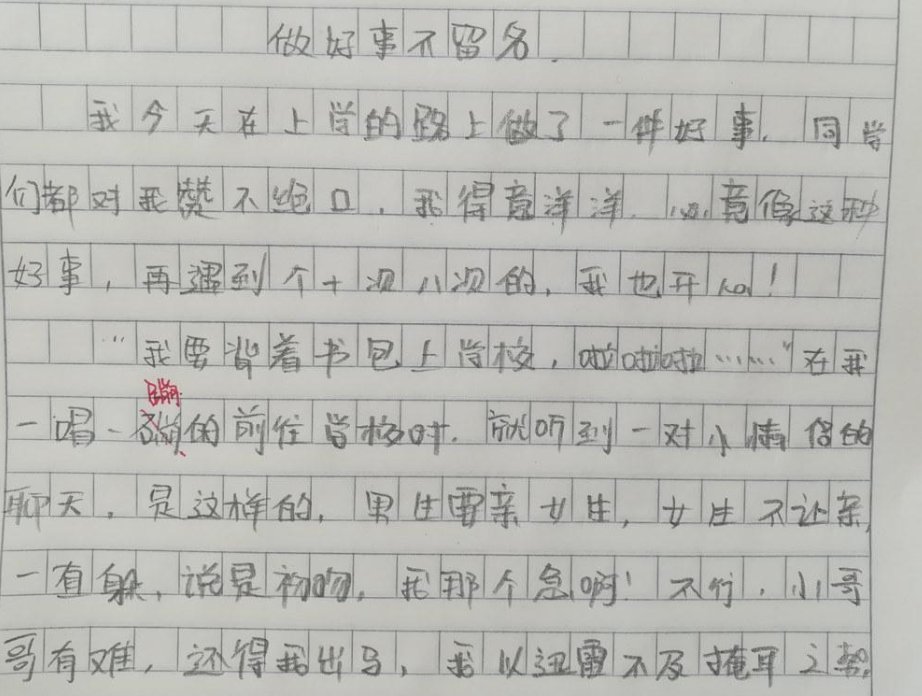 做好事不留名.
我今天在上学的路上做了一件好事.同学
们都对我赞不绝口.我得意洋洋.心竟像这种
好事,再遇到个十次八次的,我也开kai!
"我要背着书包上学校,啦啦啦……"在我
蹦
一唱一的前往学校时.就听到一对小情侣的
聊天.是这样的.男生要亲女生,女生不让亲,
一直躲,说是初吻,我那个急啊!不行.小哥
哥有难,还得我出马,我以迅雷不及掩耳之势